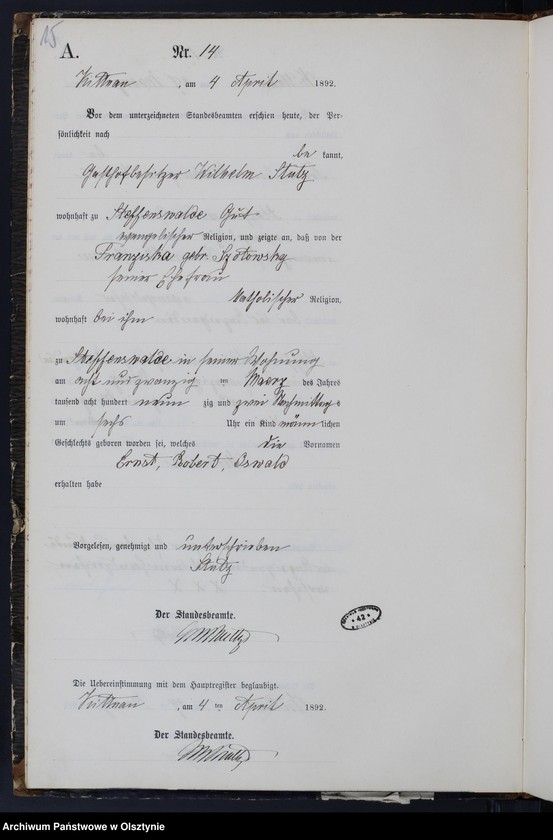 15
A.
Nr. 14
Wittnau, am 4 April 1892.
Vor dem unterzeichneten Standesbeamten erschien heute, der Per-
sönlichkeit nach
be kannt,
Gasthofbesitzer Wilhelm Stutz
wohnhaft zu Steffenswalde Gut
evangelischer Religion, und zeigte an, daß von der
Franziska geb. 
seiner Ehefrau
katholischer Religion,
wohnhaft bei ihm
zu Steffenswalde in seiner Wohnung
am acht und zwanzig ten Maerz des Jahres
tausend acht hundert neun zig und zwei Nachmittags
um sechs Uhr ein Kind männlichen
Geschlechts geboren worden sei, welches die Vornamen
Ernst, Robert, Oswald
erhalten habe
Vorgelesen, genehmigt und unterschrieben
Stutz
Der Standesbeamte.
42
Die Uebereinstimmung mit dem Hauptregister beglaubigt.
, am 4 ten April 1892.
Der Standesbeamte.
Archiwum Państwowe w Olsztynie